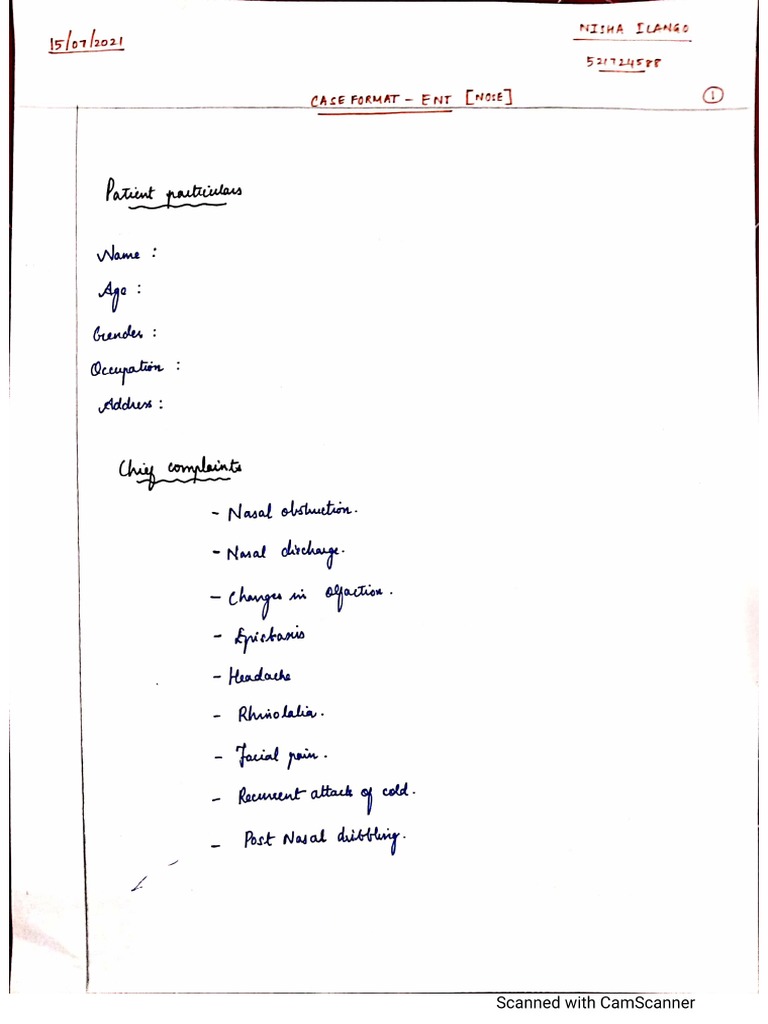 15/07/2021
NISHA ILANGO
521724588
CASE FORMAT - ENT [NOSE]
1
Patient particulars
Name :
Age :
Gender :
Occupation :
Address :
Chief complaints
- Nasal obstruction.
- Nasal discharge.
- Changes in olfaction.
- Epistaxis
- Headache
- Rhinolalia.
- Facial pain.
- Recurrent attack of cold.
- Post Nasal dribbling.
Scanned with CamScanner